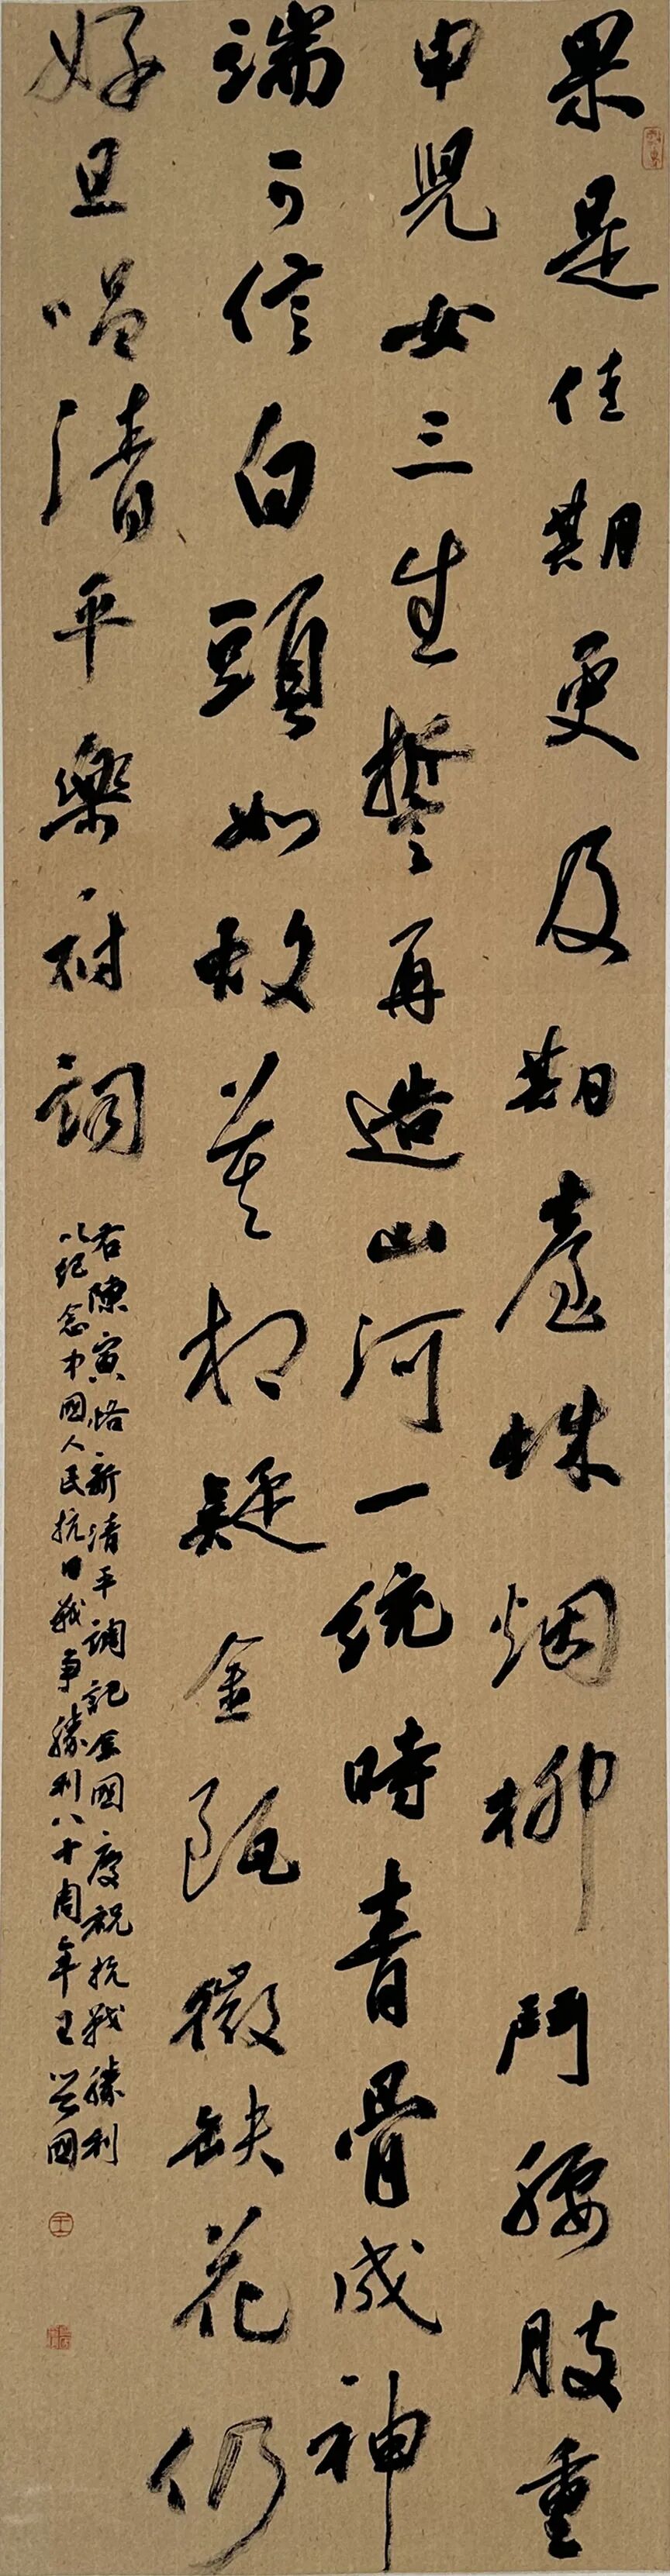 果是佳期更及期臺姝烟柳鬥腰肢重
申兒女三生誓再造山河一統時青骨成神
端可信白頭如故莫相疑金甌微缺花仍
好且唱清平樂府詞
右陳寅恪新清平調記全國慶祝抗戰勝利
以紀念中國人民抗日戰爭勝利八十周年王兴國